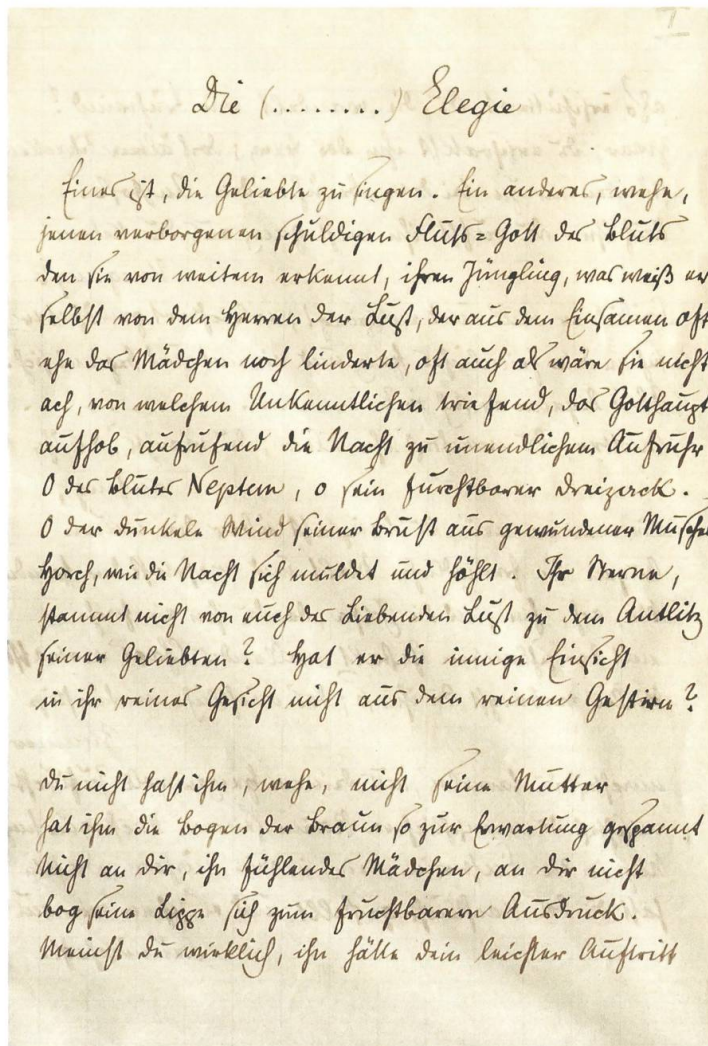 I
Die (........) Elegie
Eines ist, die Geliebte zu singen. Ein anderes, wehe,
jenen verborgenen schuldigen Fluss=Gott des Bluts
den sie von weitem erkennt, ihren Jüngling, was weiß er
selbst von dem Herren der Lust, der aus dem Einsamen oft
ehe das Mädchen noch linderte, oft auch als wäre sie nicht
ach, von welchem Unkenntlichen triefend, das Gotthaupt
aufhob, aufrufend die Nacht zu unendlichem Aufruhr
O des Blutes Neptun, o sein furchtbarer Dreizack.
O der dunkele Wind seiner Brust aus gewundener Muschel
Horch, wie die Nacht sich muldet und höhlt. Ihr Sterne,
stammt nicht von euch des Liebenden Lust zu dem Antlitz
seiner Geliebten? Hat er die innige Einsicht
in ihr reines Gesicht nicht aus dem reinen Gestirn?
Du nicht hast ihm, wehe, nicht seine Mutter
hat ihm die Bogen der Braun so zur Erwartung gespannt
Nicht an dir, ihn fühlendes Mädchen, an dir nicht
bog seine Lippe sich zum fruchtbarern Ausdruck.
Meinst du wirklich, ihn hätte dein leichter Auftritt